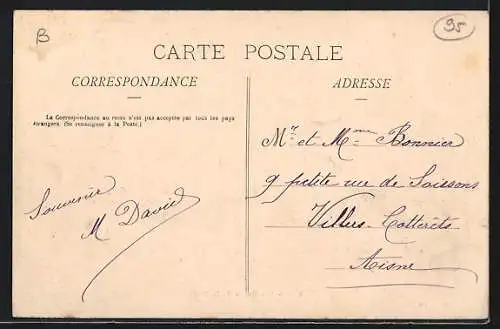 B
95
CARTE POSTALE
CORRESPONDANCE
ADRESSE
La Correspondance au recto n'est pas acceptée par tous les pays
étrangers. (Se renseigner à la Poste.)
Souvenir
M David
Mr et Mme Bonnier
9 petite rue de Soissons
Villers-Cotterêts
Aisne